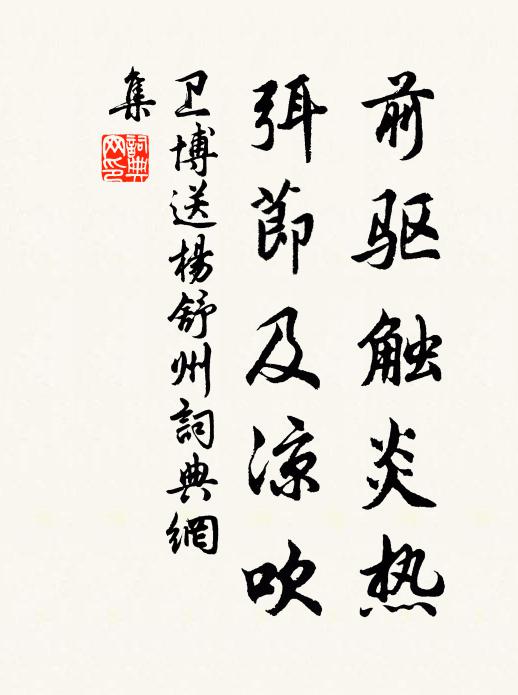 前驱触炎热
弭節及凉吹
卫博送楊舒州詞典網
集
詞典網印